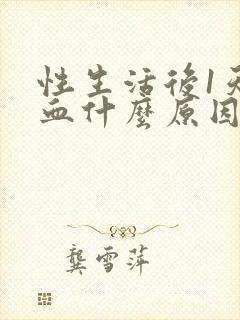 性生活後1天
血什麼原因
龔雪萍